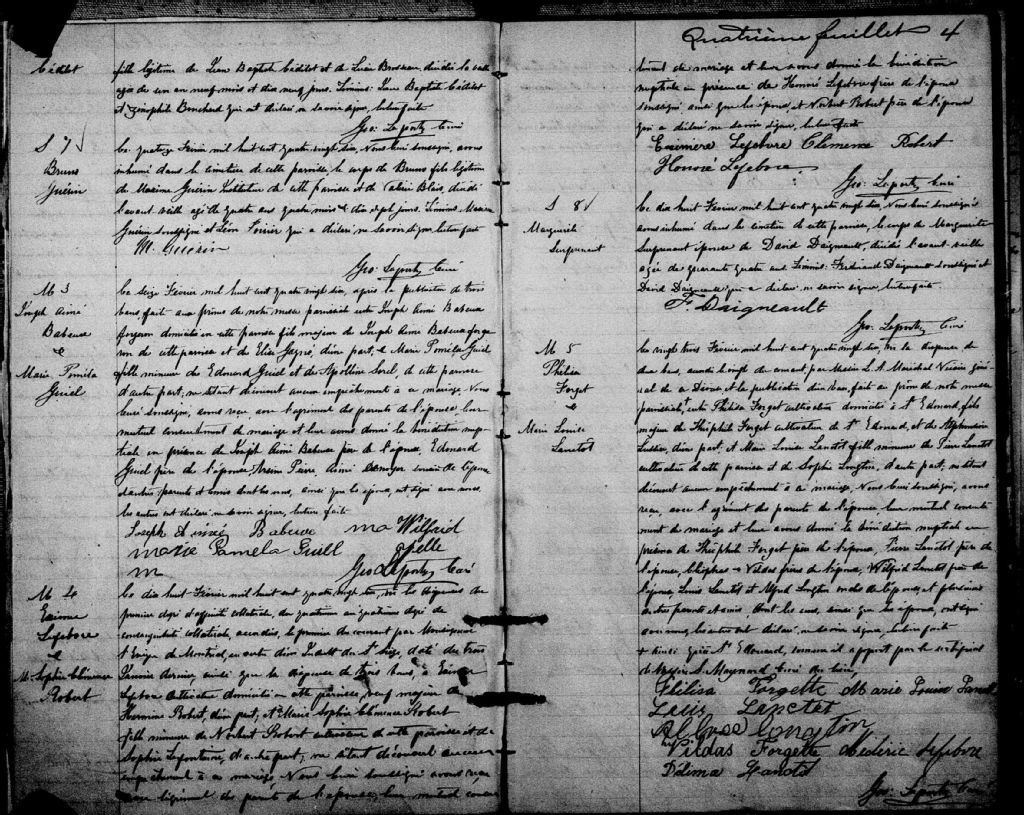 Cédilot
fille légitime de Jean Baptiste Cédilot et de Lucie Brosseau, décédée la veille
agée de un an neuf mois et dix neuf jours. Témoins: Jean Baptiste Cédilot
et Zénophile Bouchard qui ont déclaré ne savoir signer, lecture faite
Geo: Laporte Curé
S 7
Bruno
Guérin
Le quatorze Février mil huit cent quatre vingt dix, Nous Curé soussigné, avons
inhumé dans le cimetière de cette paroisse, le corps de Bruno fils légitime
de Maxime Guérin Instituteur de cette paroisse et de Valérie Blais, décédé
l'avant veille agé de quatre ans quatre mois & dix sept jours. Témoins Maxime
Guérin soussigné et Léon Poirier qui a déclaré ne savoir signer, lecture faite
M. Guérin
Geo: Laporte Curé
M 3
Joseph Aimé
Babeux
&
Marie Poméla
Guiel
Le seize Février mil huit cent quatre vingt dix, après la publication de trois
bans, faite aux prônes de notre messe paroissiale entre Joseph Aimé Babeux
forgeron domicilié en cette paroisse fils majeur de Joseph Aimé Babeux forge
ron de cette paroisse et de Eliza Gagné, d'une part, & Marie Poméla Guiel
fille mineure de Edmond Guiel et de Apolline Sorel, de cette paroisse
d'autre part, ne s'étant découvert aucun empêchement à ce mariage, Nous
Curé soussigné, avons reçu, avec l'agrément des parents de l'épouse, leur
mutuel consentement de mariage et leur avons donné la bénédiction nup
tiale en présence de Joseph Aimé Babeux père de l'époux, Edmond
Guiel père de l'épouse,
d'autres parents et amis dont les uns, ainsi que les époux ont signé avec nous,
les autres ont déclaré ne savoir signer, lecture faite
Joseph Aimé Babeux ma Wilfrid
marie Pamela Guill
m
Geo Laporte Curé
M 4
Lefebvre
&
M. Sophie Clémence
Robert
Le dix huit Février mil huit cent quatre vingt dix, vu les dispenses du
premier degré d'affinité collatérale, du quatrième au quatrième degré de
consanguinité collatérale, accordées, le premier du courant par Monseigneur
l'Evêque de Montréal, en vertu d'un Indult du St Siège, daté du trois
Janvier dernier, ainsi que la dispense de trois bans, à
Lefebvre cultivateur domicilié en cette paroisse, veuf majeur de
Hermine Robert, d'une part, & Marie Sophie Clémence Robert
fille mineure de Norbert Robert cultivateur de cette paroisse et de
Sophie Lapointe, d'autre part; ne s'étant découvert aucun
empêchement à ce mariage Nous Curé soussigné avons reçu
avec l'agrément des parents de l'épouse, leur mutuel consen
Quatrième feuillet 4
tement de mariage et leur avons donné la bénédiction
nuptiale en présence de Honoré Lefebvre frère de l'époux
soussigné ainsi que les époux, et Norbert Robert père de l'épouse
qui a déclaré ne savoir signer, lecture faite
Lefebvre Clemence Robert
Honoré Lefebvre
Geo: Laporte Curé
S 8
Marguerite
Surprenant
Le dix huit Février mil huit cent quatre vingt dix, Nous Curé soussigné
avons inhumé dans le cimetière de cette paroisse, le corps de Marguerite
Surprenant épouse de David Daigneault, décédée l'avant veille
agée de quarante quatre ans Témoins: Ferdinand Daigneault soussigné et
David Daigneault qui a déclaré ne savoir signer, lecture faite
F. Daigneault
Geo: Laporte Curé
M 5
Philéas
Forget
&
Marie Louise
Lanctot
Le vingt trois Février mil huit cent quatre vingt dix, vu la dispense de
deux bans, accordée le vingt du courant, par Messire L. A. Maréchal Vicaire géné
ral de ce Diocèse et la publication d'un ban, faite au prône de notre messe
paroissiale, entre Philéas Forget cultivateur domicilié à St Edouard, fils
majeur de Théophile Forget cultivateur de St Edouard, et de Alphonsine
Lussier, d'une part, et Marie Louise Lanctot fille mineure de Pierre Lanctot
cultivateur de cette paroisse et de Sophie Longtin, d'autre part, ne s'étant
découvert aucun empêchement à ce mariage, Nous Curé soussigné, avons
reçu, avec l'agrément des parents de l'épouse, leur mutuel consente
ment de mariage et leur avons donné la bénédiction nuptiale en
présence de Théophile Forget père de l'époux, Pierre Lanctot père de
l'épouse, Cléophas & Vildas frères de l'époux, Wilfrid Lanctot frère de
l'épouse, Louis Lanctot et Alfred Longtin oncles de l'épouse, et plusieurs
autres parents et amis, dont les uns, ainsi que les époux, ont signé
avec nous, les autres ont déclaré ne savoir signer, lecture faite
Philéas Forgette Marie Louise Lanctot
Louis Lanctot
Longtin
Vildas Forgette Médéric Lefebvre
Délima Lanctot
Geo: Laporte Curé